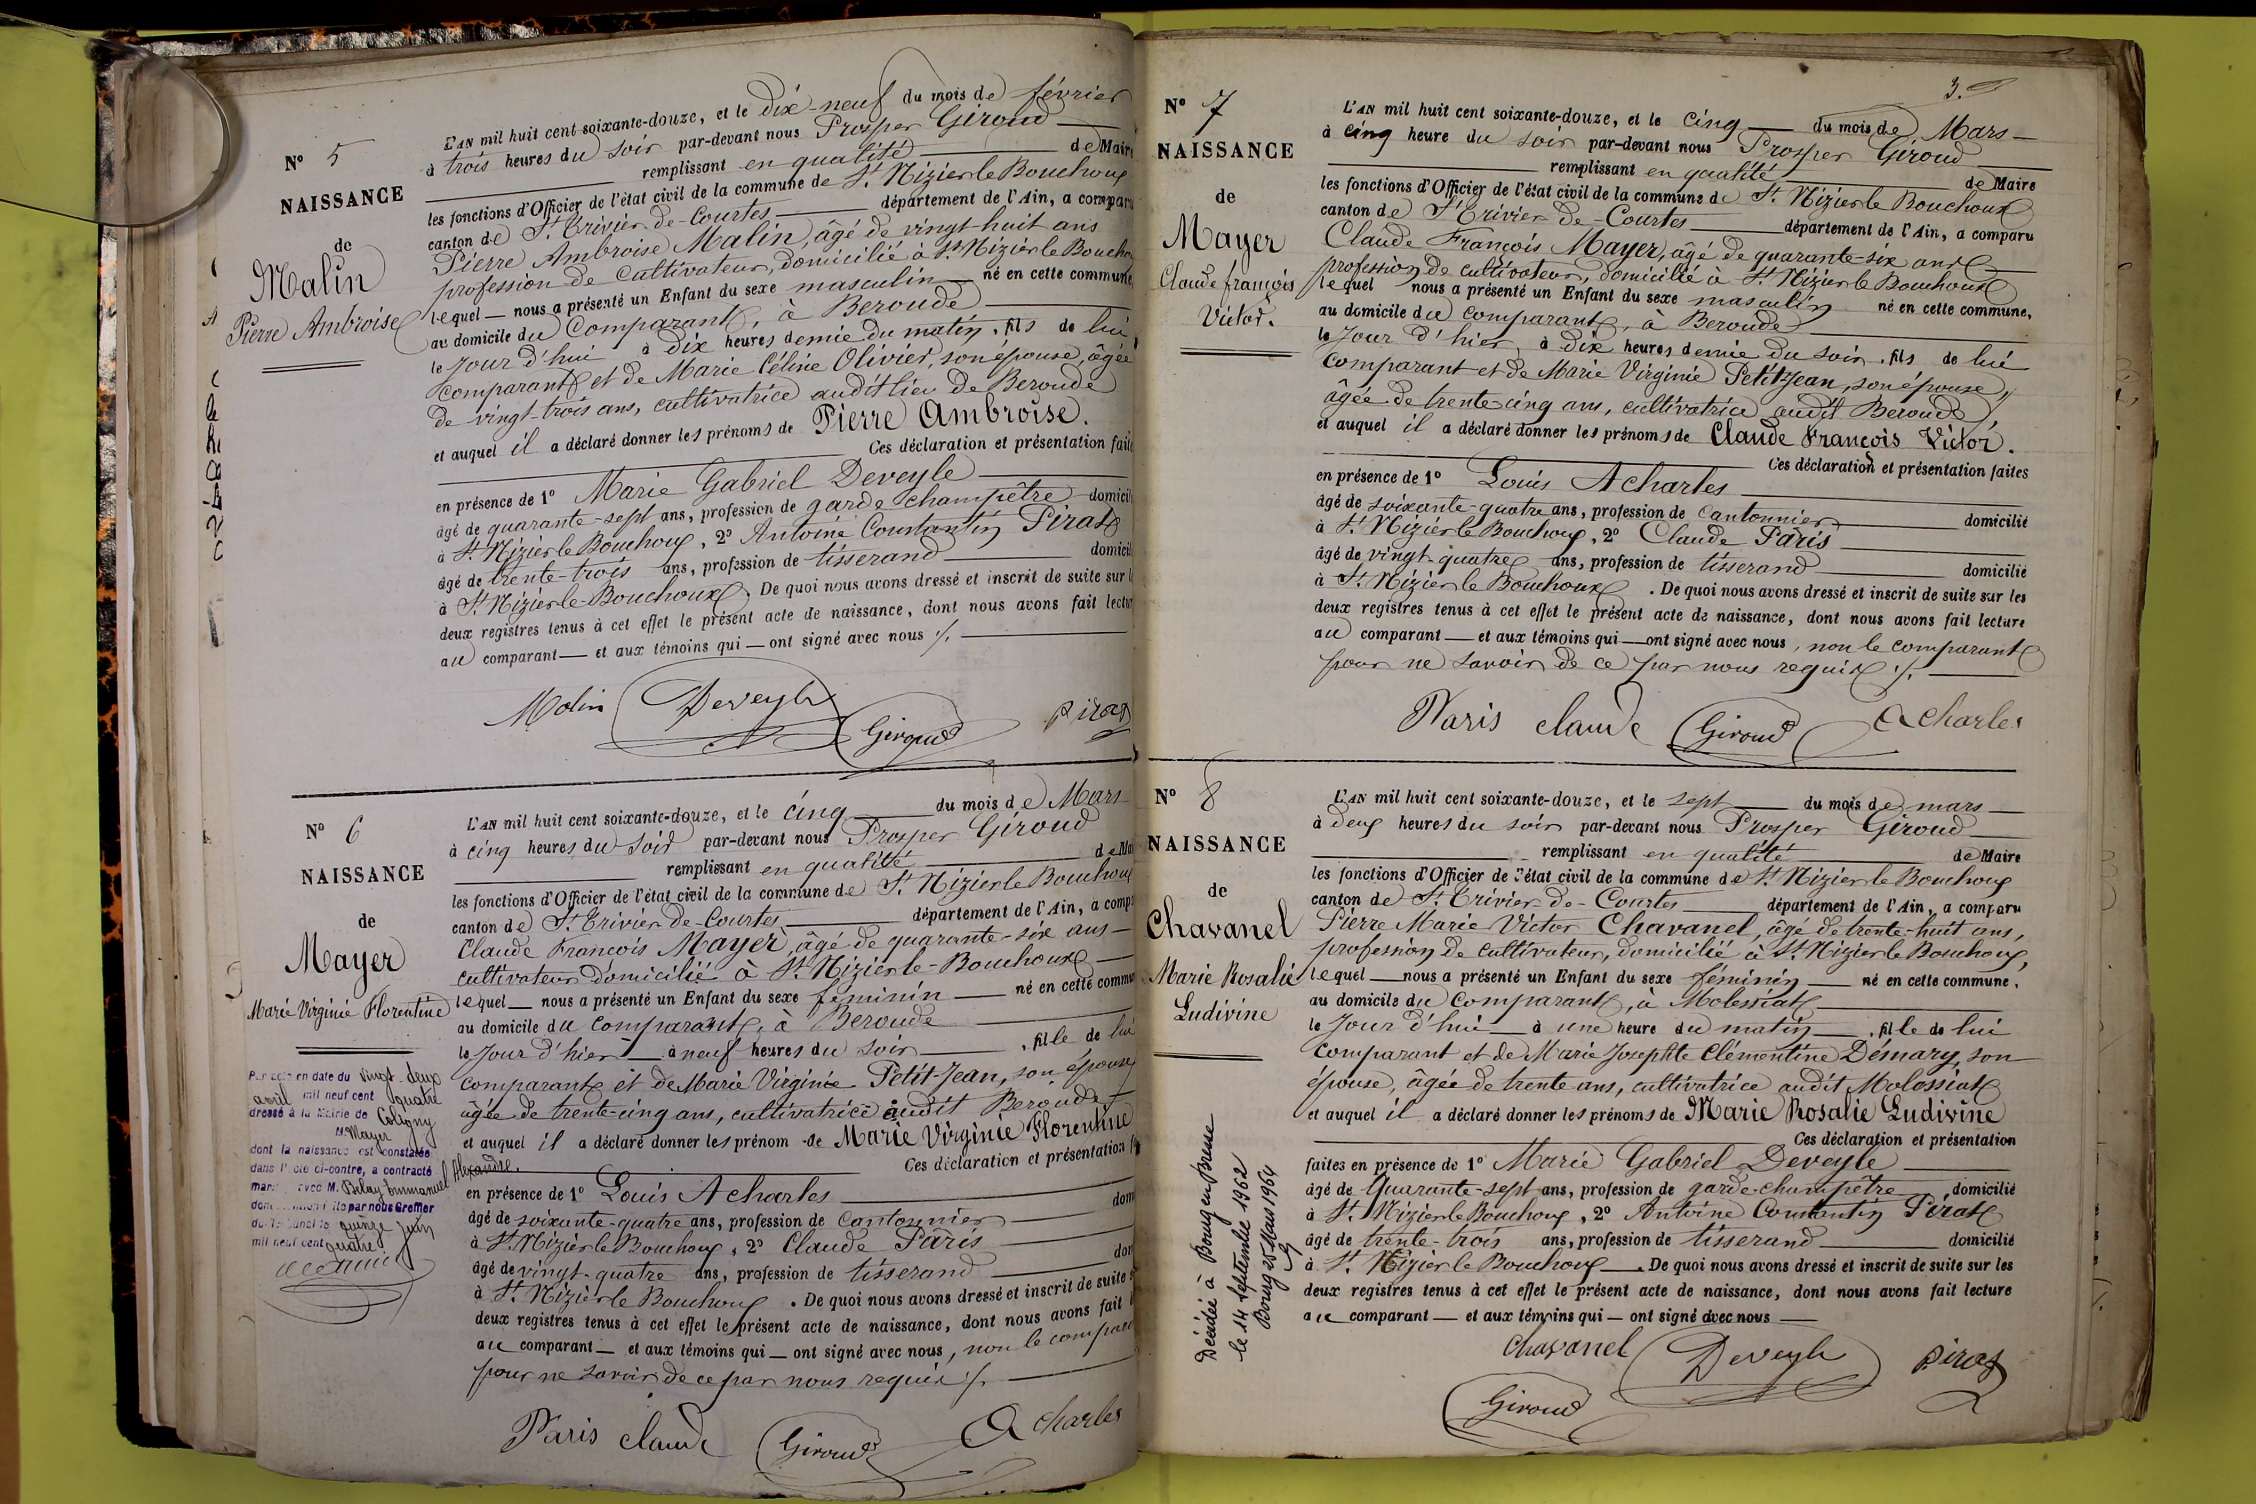 N° 5
NAISSANCE
de
Malin
Pierre Ambroise
L'AN mil huit cent soixante-douze, et le Dix-neuf du mois de février
à trois heures du soir par-devant nous Prosper Giroud
remplissant en qualité de Maire
les fonctions d'Officier de l'état civil de la commune de St Nizier le Bouchoux
canton de St Trivier de Courtes département de l'Ain, a comparu
Pierre Ambroise Malin, âgé de vingt-huit ans
profession de cultivateur, domicilié à St Nizier le Boucho
lequel — nous a présenté un Enfant du sexe masculin né en cette commune,
au domicile du Comparant, à Beroude
le Jour d'hui à Dix heures demie du matin, fils de lui
comparant et de Marie Céline Olivier, son épouse, âgée
de vingt-trois ans, cultivatrice audit lieu de Beroude
et auquel il a déclaré donner les prénoms de Pierre Ambroise.
Ces déclaration et présentation faite
en présence de 1° Marie Gabriel Deveyle
âgé de quarante-sept ans, profession de garde champêtre domicil
à St Nizier le Bouchoux, 2° Antoine Constantin Pirat
âgé de trente-trois ans, profession de tisserand domicil
à St Nizier le Bouchoux. De quoi nous avons dressé et inscrit de suite sur l
deux registres tenus à cet effet le présent acte de naissance, dont nous avons fait lectur
au comparant — et aux témoins qui — ont signé avec nous ./.
Molin Deveyle Giroud Pirat
N° 6
NAISSANCE
de
Mayer
Marie Virginie Florentine
Par acte en date du vingt-deux
avril mil neuf cent quatre
dressé à la Mairie de Coligny
M. Mayer
dont la naissance est constatée
dans l'acte ci-contre, a contracté
mariage avec M. Belay Emmanuel Alexandre.
par nous Greffier
du tribunal le quinze juin
mil neuf cent quatre
L'AN mil huit cent soixante-douze, et le cinq du mois de Mars
à cinq heures du soir par-devant nous Prosper Giroud
remplissant en qualité de Mai
les fonctions d'Officier de l'état civil de la commune de St Nizier le Bouchoux
canton de St Trivier de Courtes département de l'Ain, a comp
Claude François Mayer, âgé de quarante-six ans —
cultivateur domicilié à St Nizier le Bouchoux
lequel — nous a présenté un Enfant du sexe féminin — né en cette commu
au domicile du comparant, à Beroude
le Jour d'hier — à neuf heures du soir, fille de lui
comparant et de Marie Virginie Petit-Jean, son épouse
âgée de trente-cinq ans, cultivatrice audit Beroude
et auquel il a déclaré donner les prénom de Marie Virginie Florentine
Ces déclaration et présentation f
en présence de 1° Louis Acharles
âgé de soixante-quatre ans, profession de cantonnier dom
à St Nizier le Bouchoux, 2° Claude Pâris
âgé de vingt-quatre ans, profession de tisserand dom
à St Nizier le Bouchoux. De quoi nous avons dressé et inscrit de suite s
deux registres tenus à cet effet le présent acte de naissance, dont nous avons fait l
au comparant — et aux témoins qui — ont signé avec nous, non le compar
pour ne savoir de ce par nous requis ./.
Paris claude Giroud Acharles
3.
N° 7
NAISSANCE
de
Mayer
Claude françois
Victor.
L'AN mil huit cent soixante-douze, et le cinq du mois de Mars —
à cinq heure du soir par-devant nous Prosper Giroud
remplissant en qualité de Maire
les fonctions d'Officier de l'état civil de la commune de St Nizier le Bouchoux
canton de St Trivier de Courtes département de l'Ain, a comparu
Claude François Mayer, âgé de quarante-six ans
profession de cultivateur, domicilié à St Nizier le Bouchoux
lequel nous a présenté un Enfant du sexe masculin né en cette commune,
au domicile du comparant, à Beroude
le Jour d'hier, à dix heures demie du soir, fils de lui
comparant et de Marie Virginie Petit-Jean, son épouse,
âgée de trente-cinq ans, cultivatrice audit Beroude
et auquel il a déclaré donner les prénoms de Claude François Victor.
Ces déclaration et présentation faites
en présence de 1° Louis Acharles
âgé de soixante-quatre ans, profession de Cantonnier domicilié
à St Nizier le Bouchoux, 2° Claude Pâris
âgé de vingt-quatre ans, profession de tisserand domicilié
à St Nizier le Bouchoux. De quoi nous avons dressé et inscrit de suite sur les
deux registres tenus à cet effet le présent acte de naissance, dont nous avons fait lecture
au comparant — et aux témoins qui — ont signé avec nous, non le comparant
pour ne savoir de ce par nous requis ./.
Paris claude Giroud Acharles
N° 8
NAISSANCE
de
Chavanel
Marie Rosalie
Ludivine
Décédée à Bourg en Bresse
le 14 septembre 1962
Bourg 25 Mars 1964
L'AN mil huit cent soixante-douze, et le sept du mois de mars —
à deux heures du soir par-devant nous Prosper Giroud
remplissant en qualité de Maire
les fonctions d'Officier de l'état civil de la commune de St Nizier le Bouchoux
canton de St Trivier de Courtes département de l'Ain, a comparu
Pierre Marie Victor Chavanel, âgé de trente-huit ans,
profession de cultivateur, domicilié à St Nizier le Bouchoux,
lequel — nous a présenté un Enfant du sexe féminin — né en cette commune,
au domicile du comparant, à Molessiat
le Jour d'hui — à une heure du matin, fille de lui
comparant et de Marie Josephte Clémentine Démary, son
épouse, âgée de trente ans, cultivatrice audit Molossiat
et auquel il a déclaré donner les prénoms de Marie Rosalie Ludivine
Ces déclaration et présentation
faites en présence de 1° Marie Gabriel Deveyle
âgé de Quarante-sept ans, profession de garde-champêtre domicilié
à St Nizier le Bouchoux, 2° Antoine Constantin Pirat
âgé de trente-trois ans, profession de tisserand domicilié
à St Nizier le Bouchoux. De quoi nous avons dressé et inscrit de suite sur les
deux registres tenus à cet effet le présent acte de naissance, dont nous avons fait lecture
au comparant — et aux témoins qui — ont signé avec nous —
Chavanel Deveyle Pirat
Giroud